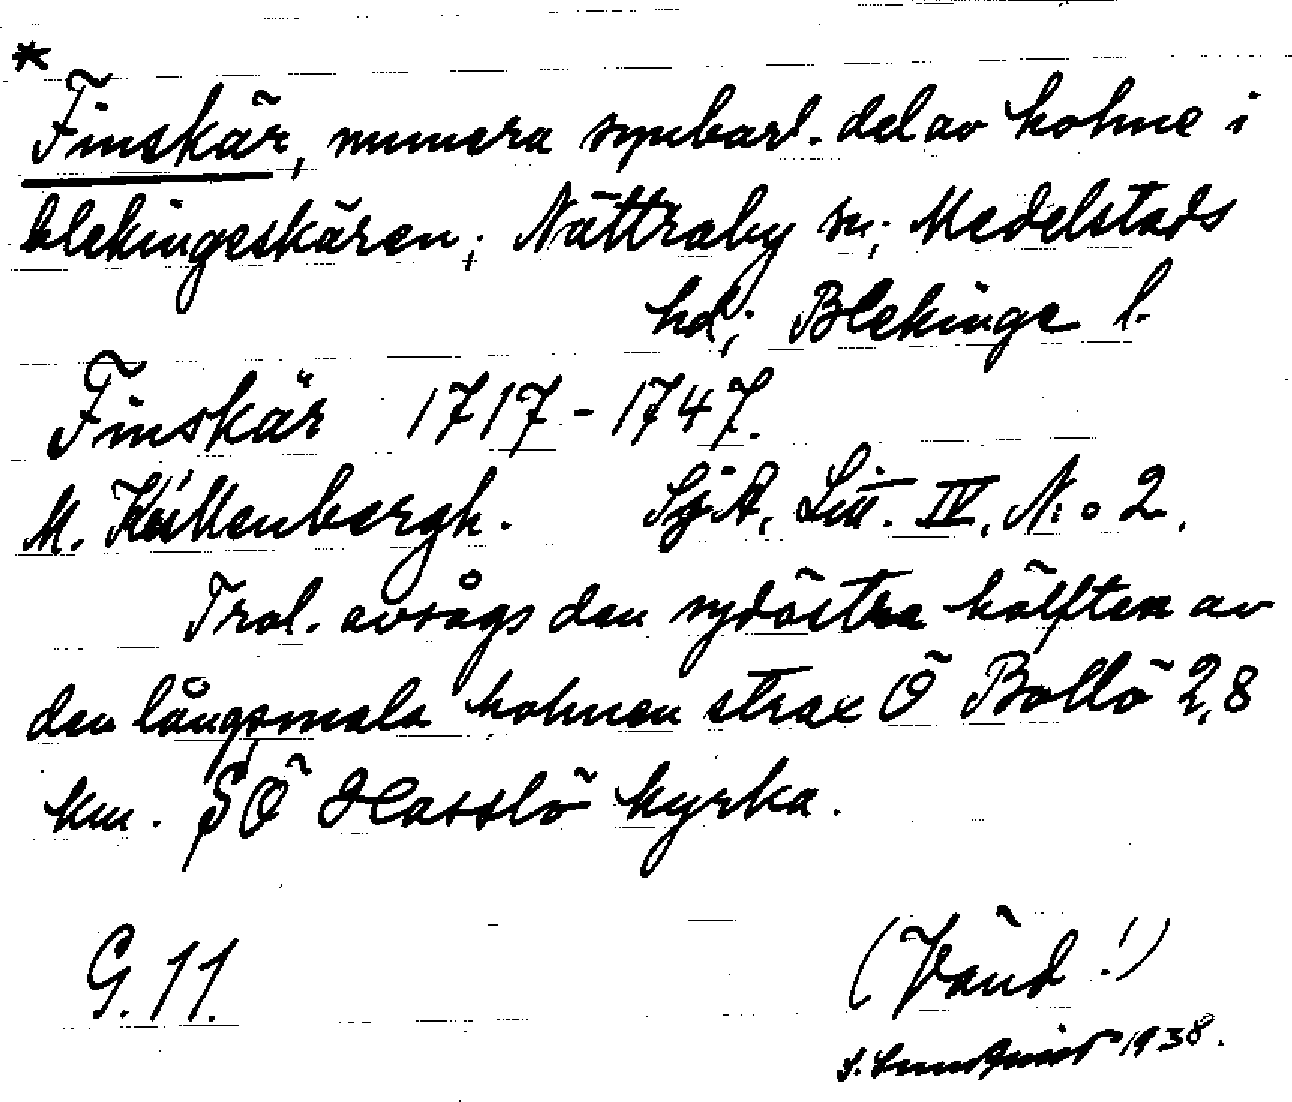 *
Finskär, numera synbarl. del av holme i
blekingeskären; Nättraby sn; Medelstads
hd; Blekinge l.
Finskär 1717-1747.
M. Källenbergh. SjA, Litt. IV, N:o 2.
Trol. avsågs den sydöstra hälften av
den långsmala holmen strax Ö Bollö 2,8
km. SÖ Hasslö kyrka.
G. 11.
(Vänd!)
S. 1938.